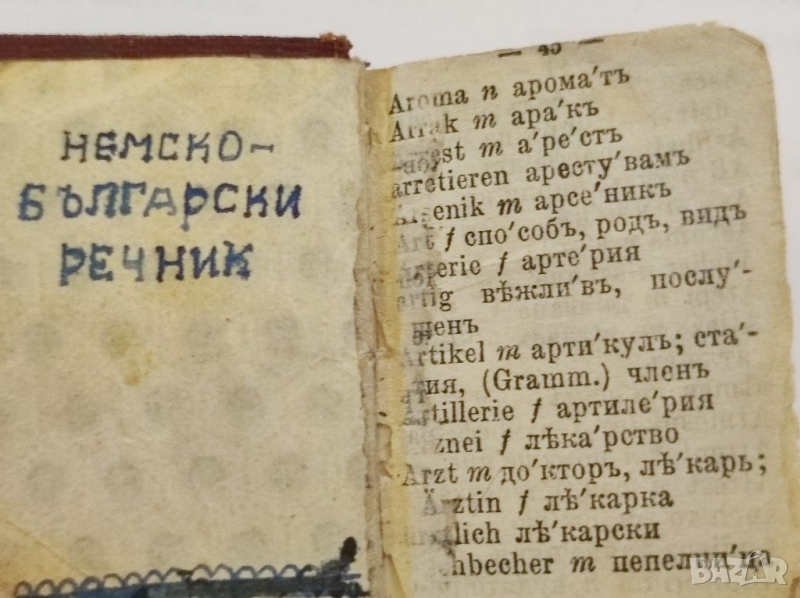 НЕМСКО-
БЪЛГАРСКИ
РЕЧНИК
Aroma n арома'тъ
Arrak m ара'къ
m а'ре'стъ
arretieren аресту'вамъ
Arsenik m арсе'никъ
Art f спо'собъ, родъ, видъ
Arterie f арте'рия
artig вѣжли'въ, послу'-
шенъ
Artikel m арти'кулъ; ста-
тия, (Gramm.) членъ
Artillerie f артиле'рия
f лѣка'рство
Arzt m до'кторъ, лѣ'карь;
Ärztin f лѣ'карка
ärztlich лѣ'карски
m
BAZAR
bg